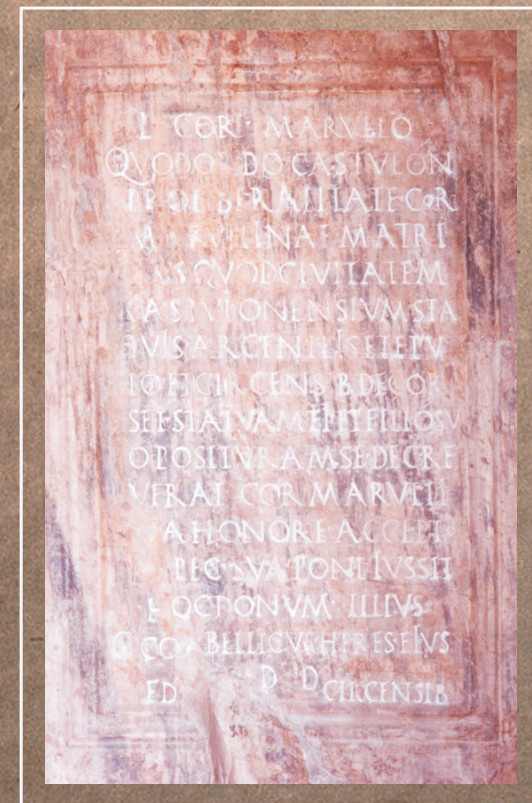 L COR · MARVLLO
QVOD ORDO CASTVLON
PRO LIBERALITATE COR
MARVLLINAE MATRI
QVOD CIVITATEM
CASTVLONENSIVM STA
TVIS ARGENTEIS ET EPV
LO ET CIRCENSIB DECOR
SET STATVAM EI ET FILIO SV
O POSITVRAM SE DECRE
VERAT COR MARVLLI
A HONORE ACCEPTO
PEC · SVA PONI IVSSIT
OCTONVM · ILLIVS
C COR BELLICVS HERES EIVS
ED D D CIRCENSIB